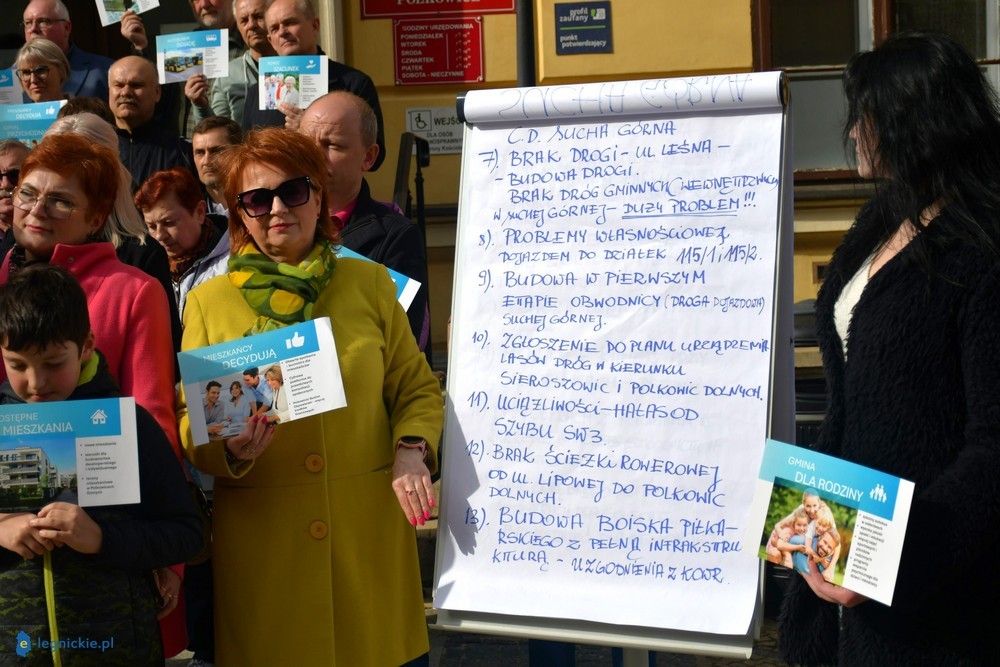 POLKOWICE
GODZINY URZĘDOWANIA
PONIEDZIAŁEK
WTOREK
ŚRODA
CZWARTEK
PIĄTEK
SOBOTA - NIECZYNNE
profil
zaufany
punkt
potwierdzający
WEJŚ
DLA
SZACUNEK
DECYDUJĄ
C.D. SUCHA GÓRNA
7). BRAK DROGI - UL LEŚNA -
- BUDOWA DROGI.
BRAK DRÓG GMINNYCH (WEWNĘTRZNYCH)
W SUCHEJ GÓRNEJ - DUŻY PROBLEM!!!
8). PROBLEMY WŁASNOŚCIOWEJ,
DOJAZDEM DO DZIAŁEK 115/1 i 115/2.
9). BUDOWA W PIERWSZYM
ETAPIE OBWODNICY (DROGA DOJAZDOWA)
SUCHEJ GÓRNEJ.
10). ZGŁOSZENIE DO PLANU URZĄDZENIA
LASÓW DRÓG W KIERUNKU
SIEROSZOWIC I POLKOWIC DOLNYCH.
11). UCIĄŻLIWOŚCI - HAŁAS OD
SZYBU SW3.
12). BRAK ŚCIEŻKI ROWEROWEJ
OD UL. LIPOWEJ DO POLKOWIC
DOLNYCH.
13). BUDOWA BOISKA PIŁKA-
RSKIEGO Z PEŁNĄ INFRASTRU
KTURĄ - UZGODNIENIA Z KOWR.
MIESZKAŃCY
DECYDUJĄ
OSTĘPNE
MIESZKANIA
GMINA
DLA RODZINY
e-legnickie.pl